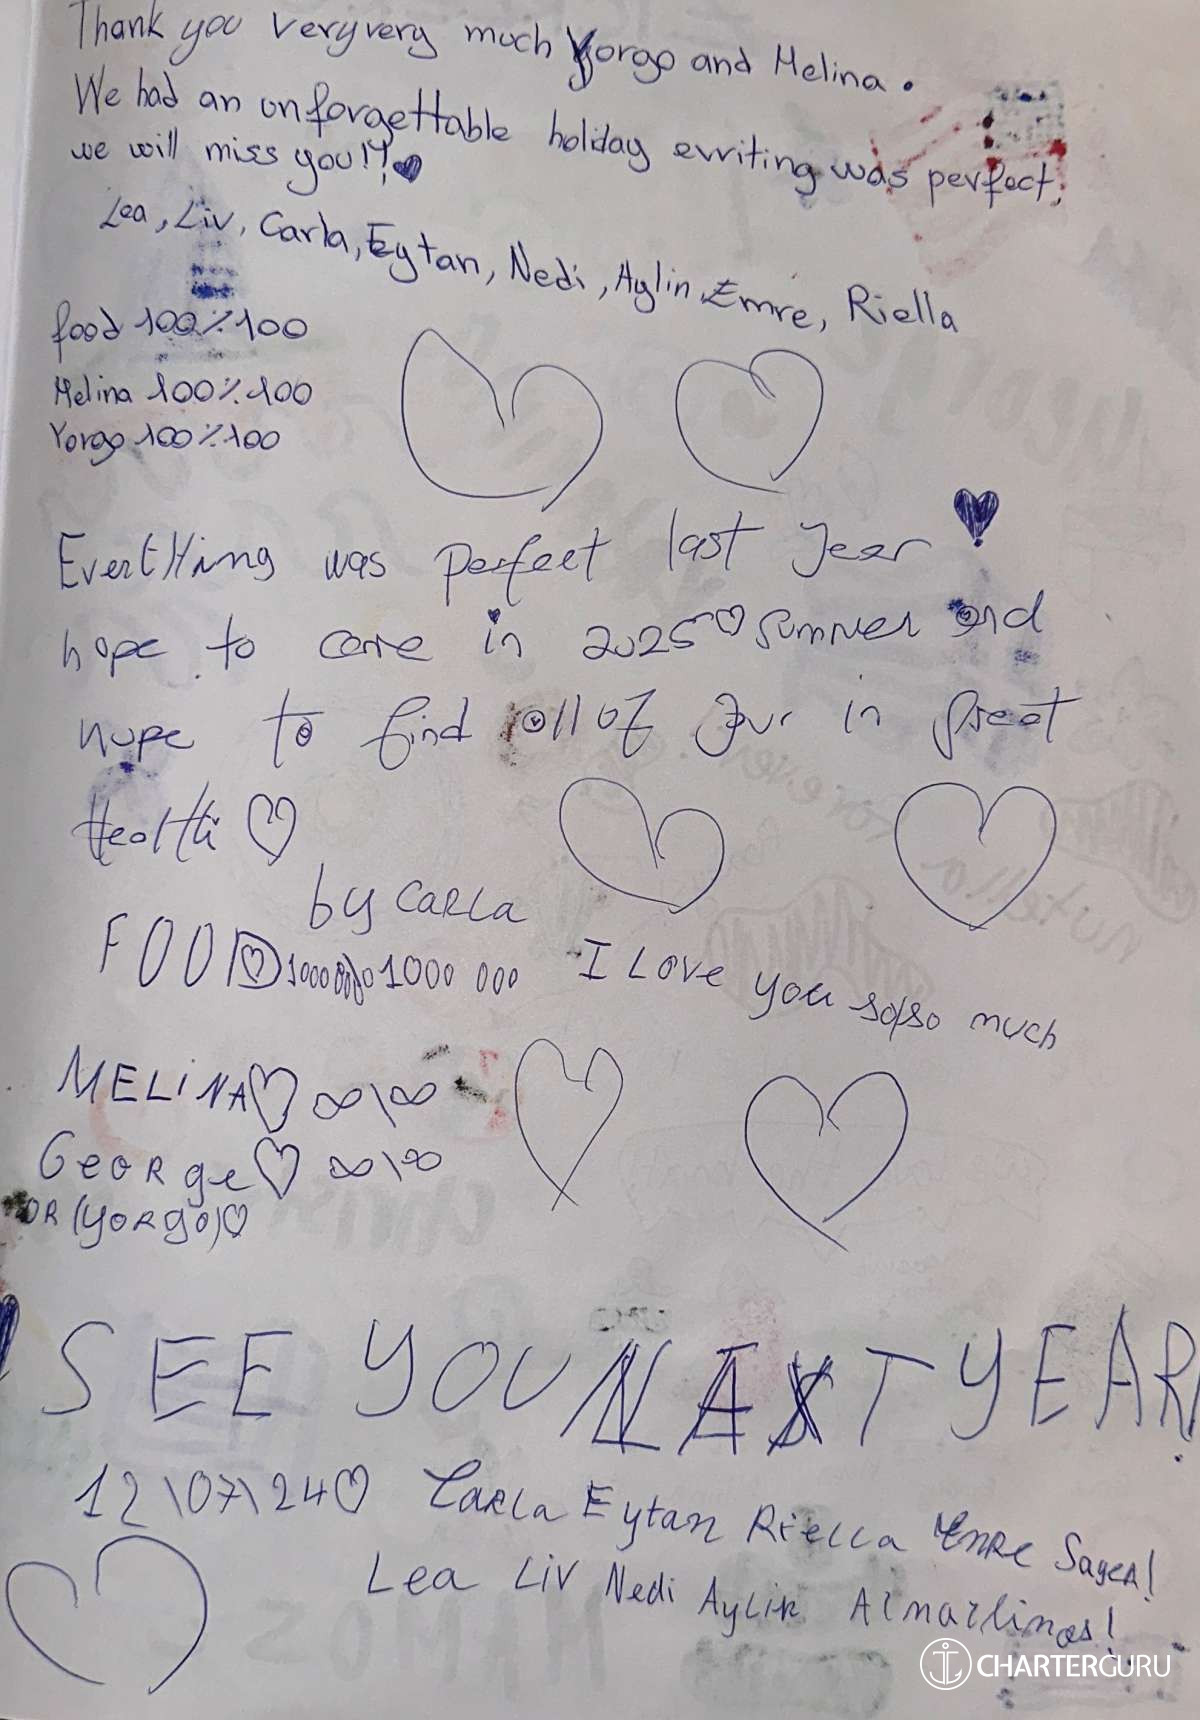 Thank you veryvery much Yorgo and Melina.
We had an unforgettable holiday evriting was perfect.
we will miss you!! ♥
Lea, Liv, Carla, Eytan, Nedi, Aylin, Emre, Riella
food 100%100
Melina 100%100
Yorgo 100%100
EvertHing was perfect last year ♥
hope to come in 2025 ♡ summer and
hope to find all of your in great
Health ♡
by CARLA
FOOD ♡ 1000 000
I Love you so/so much
MELiNA ♡ ∞\∞
GEORge ♡ ∞\∞
OR (YORgO) ♡
SEE YOU NEXT YEAR!
12\07\24 ♡ CARLA Eytan Riella EMRE Sages!
Lea Liv Nedi Aylin
CHARTERGURU